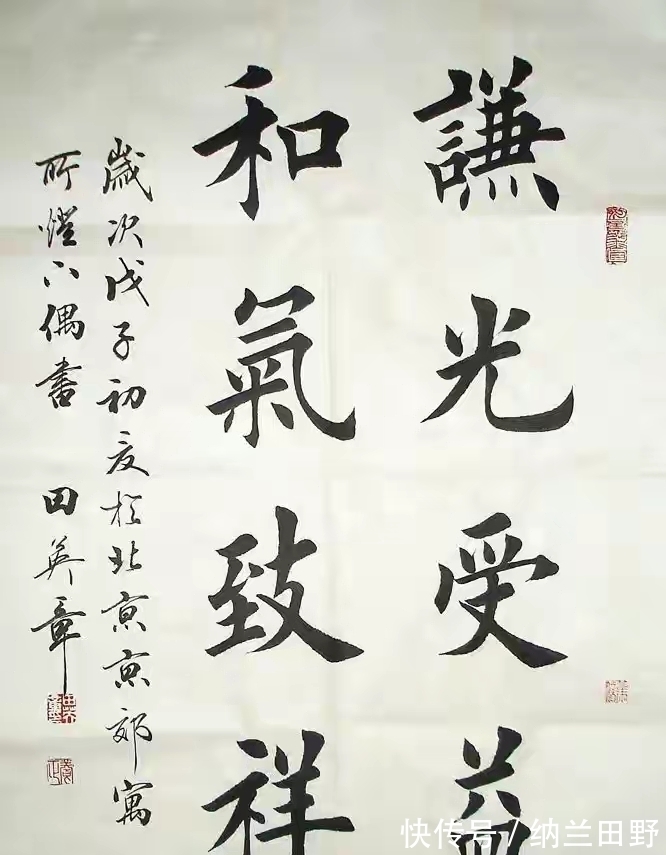 謙光受益
和氣致祥
歲次戊子初夏於北京京郊寓
所燈下偶書 田英章
快传号 / 纳兰田野